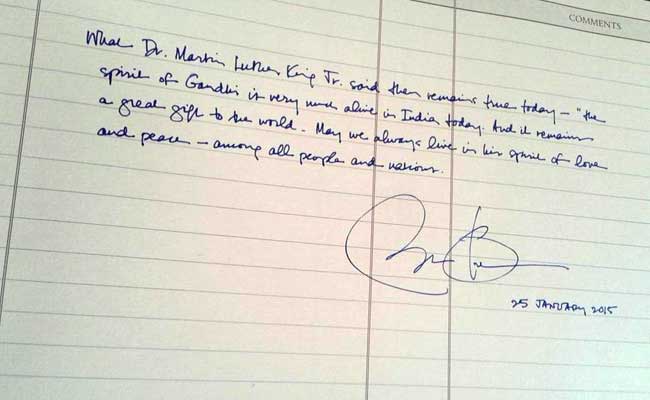 COMMENTS
What Dr. Martin Luther King Jr. said then remains true today – "the
spirit of Gandhi is very much alive in India today. And it remains
a great gift to the world. May we always live in his spirit of love
and peace – among all people and nations.
25 JANUARY 2015